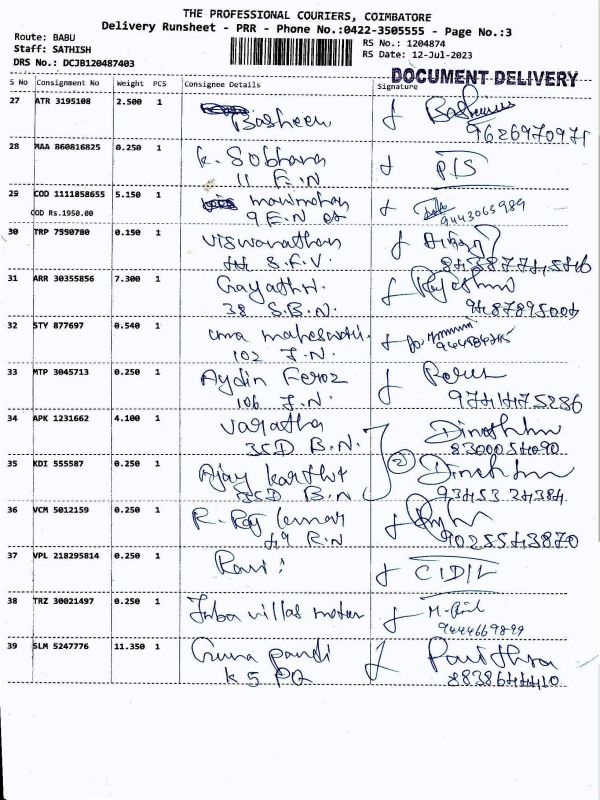 THE PROFESSIONAL COURIERS, COIMBATORE
Delivery Runsheet - PRR - Phone No.:0422-3505555 - Page No.:3
Route: BABU
Staff: SATHISH
DRS No.: DCJB120487403
RS No.: 1204874
RS Date: 12-Jul-2023
DOCUMENT DELIVERY
S No Consignment No Weight PCS Consignee Details Signature
27 ATR 3195108 2.500 1 Basheer
9626970971
28 MAA 860816825 0.250 1 K. Sobhana
11 F.N
29 COD 1111858655 5.150 1 manmohan
COD Rs.1950.00 9 E.N
9443065989
30 TRP 7550780 0.150 1 Viswanathan
S.F.V.
31 ARR 30355856 7.300 1 Gayathri.
38 S.B.N.
9487895004
32 STY 877697 0.540 1 uma maheswari.
102 J.N.
33 MTP 3045713 0.250 1 Aydin Feroz
106 J.N.
9741475286
34 APK 1231662 4.100 1 Varatha
35D B.N.
8300054090
35 KDI 555587 0.250 1 Ajay karthi
35D B.N
2
9345324384
36 VCM 5012159 0.250 1 R. Raj kumar
49 R.N
9025543870
37 VPL 218295814 0.250 1 Ravi
38 TRZ 30021497 0.250 1 Inba villas motor
9444669899
39 SLM 5247776 11.350 1 Guna pandi Pavithra
K 5 PQ 8838644410